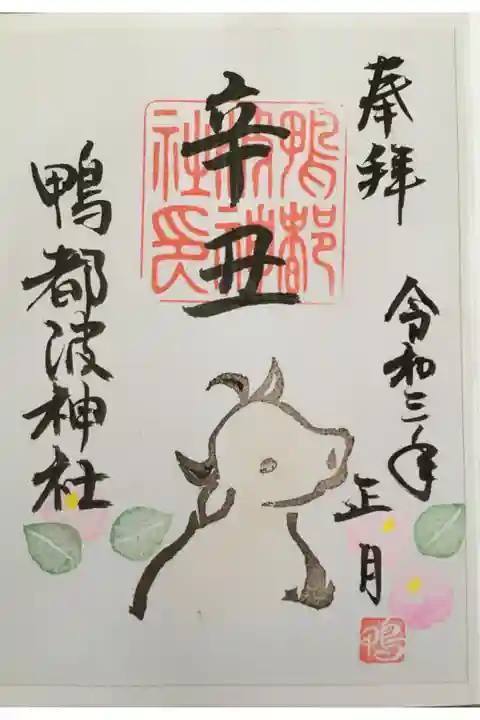 奉拝
令和三年
正月
辛丑
鴨都波神社印
鴨都波神社
鴨